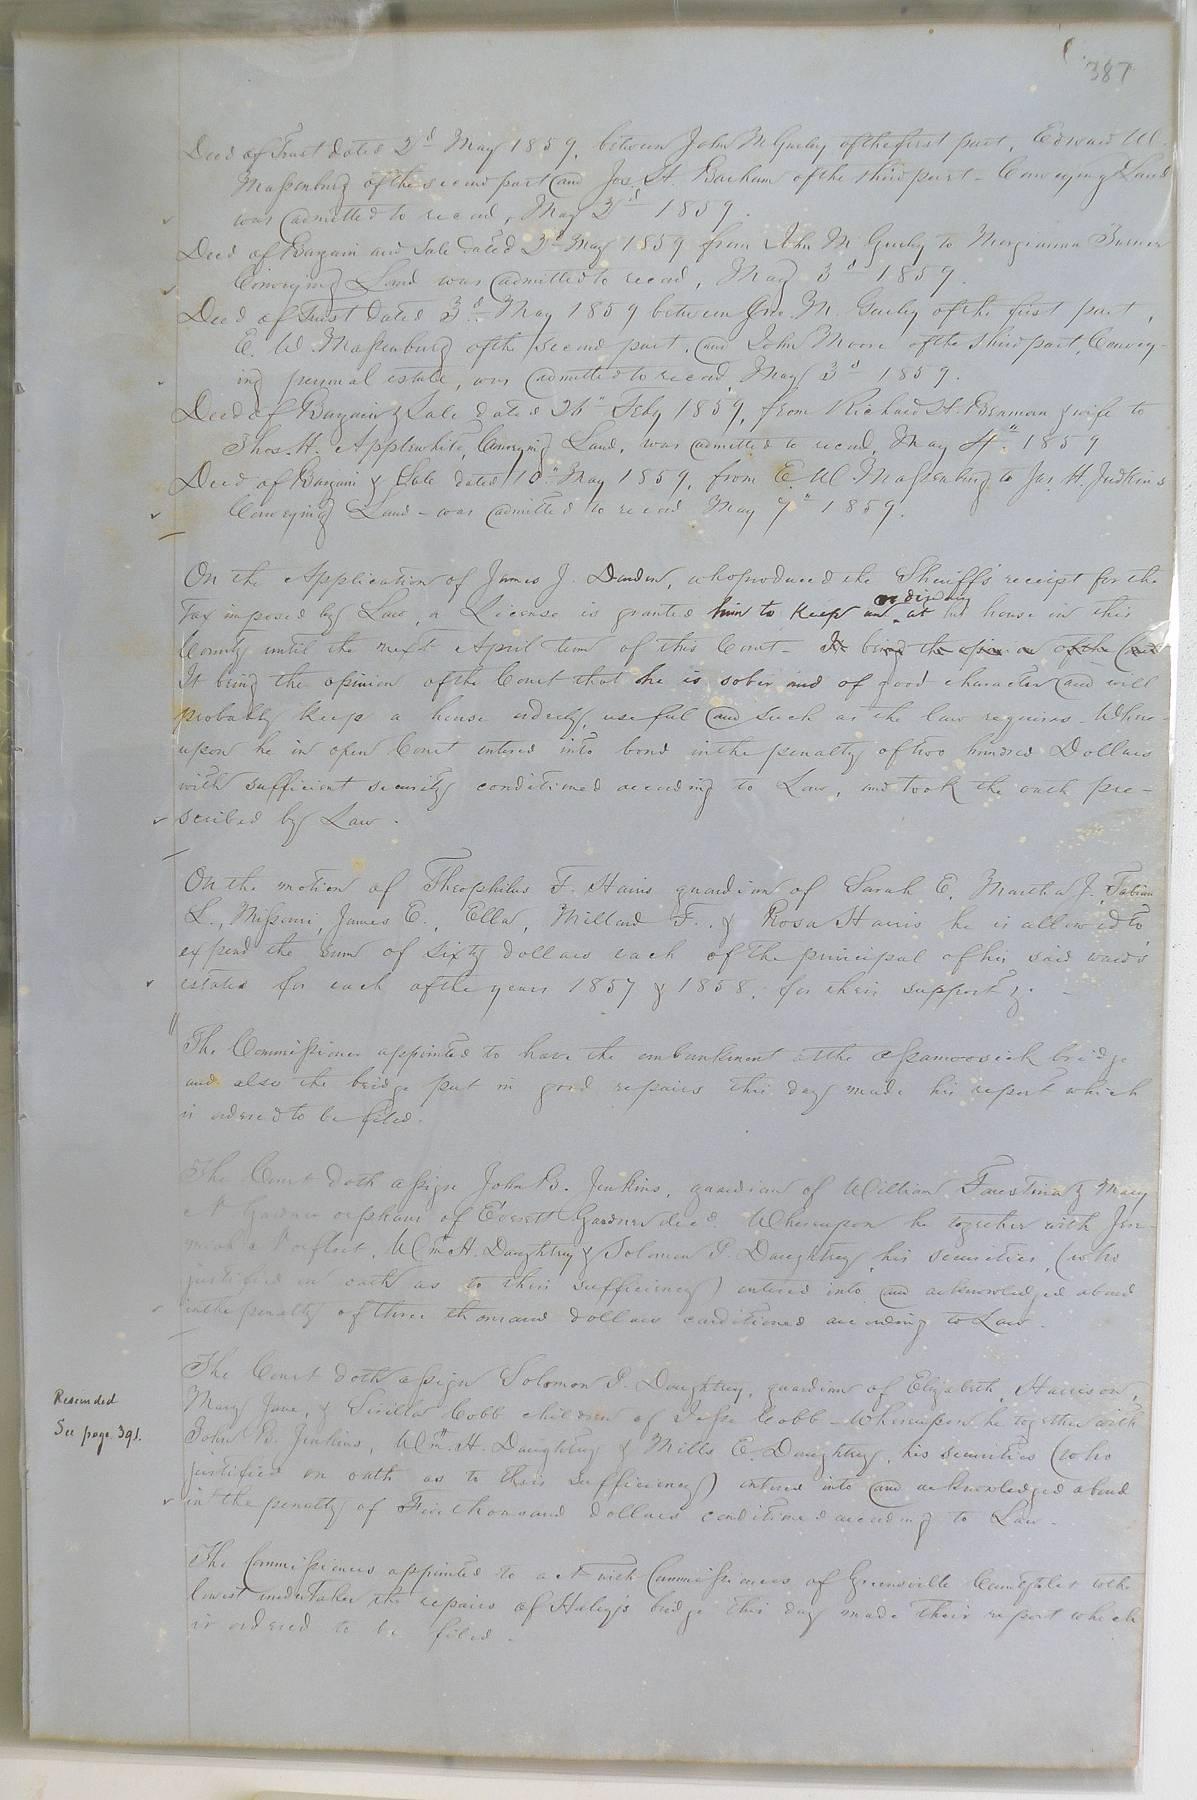 387
Deed of Trust dated 2d May 1859, between John M Gurley of the first part, Edward W.
Massenburg of the second part and Jos. H. Barham of the third part - Conveying Land
was admitted to record, May 2d 1859.
Deed of Bargain and Sale dated 3d May 1859 from John M Gurley to Turner
Conveying Land was admitted to record, May 3d 1859.
Deed of Trust dated 3d May 1859 between Jno. M. Gurley of the first part,
E. W. Massenburg of the second part, and John Moore of the third part, Convey-
ing personal estate, was admitted to record May 3d 1859.
Deed of Bargain & Sale dated 26" Feby 1859, from Richard H. Beaman & wife to
Thos. H. Applewhite, Conveying Land, was admitted to record, May 4" 1859
Deed of Bargain & Sale dated 10" May 1859, from E. W. Massenburg to Jas. H. Judkins
Conveying Land - was admitted to record May 7" 1859.
On the Application of James J. Darden, who produced the Sheriff's receipt for the
Tax imposed by Law, a License is granted him to keep an ordinary at his house in this
County until the next April term of this Court - It being the opinion of the Court
It being the opinion of the Court that he is sober and of good character and will
probably keep a house orderly, useful and such as the law requires. Where-
upon he in open Court entered into bond in the penalty of two hundred Dollars
with sufficient security conditioned according to Law, and took the oath pre-
scribed by Law.
On the motion of Theophilus F. Harris guardian of Sarah E, Martha J., Fabian
L., Missouri, James E., Ella, Millard F., & Rosa Harris he is allowed to
expend the sum of sixty dollars each of the principal of his said wards
estates for each of the years 1857 & 1858, for their support &.
The Commissioner appointed to have the embankment at the Assamoosick bridge
and also the bridge put in good repairs this day made his report which
is ordered to be filed.
The Court doth assign John B. Jenkins, guardian of William, Faustina & Mary
A Gardner orphans of Everett Gardner decd. Whereupon he together with Jere-
miah Wm. H. Daughtrey & Solomon P. Daughtrey his securities, (who
justified on oath as to their sufficiency) entered into and acknowledged a bond
in the penalty of three thousand dollars conditioned according to Law.
Rescinded
See page 391.
The Court doth assign Solomon P. Daughtrey, guardian of Elizabeth, Harrison,
Mary Jane, & Cobb children of Jesse Cobb - Whereupon he together with
John B. Jenkins, Wm. H. Daughtrey & Mills E. Daughtrey, his securities (who
justified on oath as to their sufficiency) entered into and acknowledged a bond
in the penalty of Five thousand dollars conditioned according to Law.
The Commissioners appointed to act with Commissioners of Greensville County to let to the
lowest undertaker the repairs of Haley's bridge this day made their report which
is ordered to be filed.